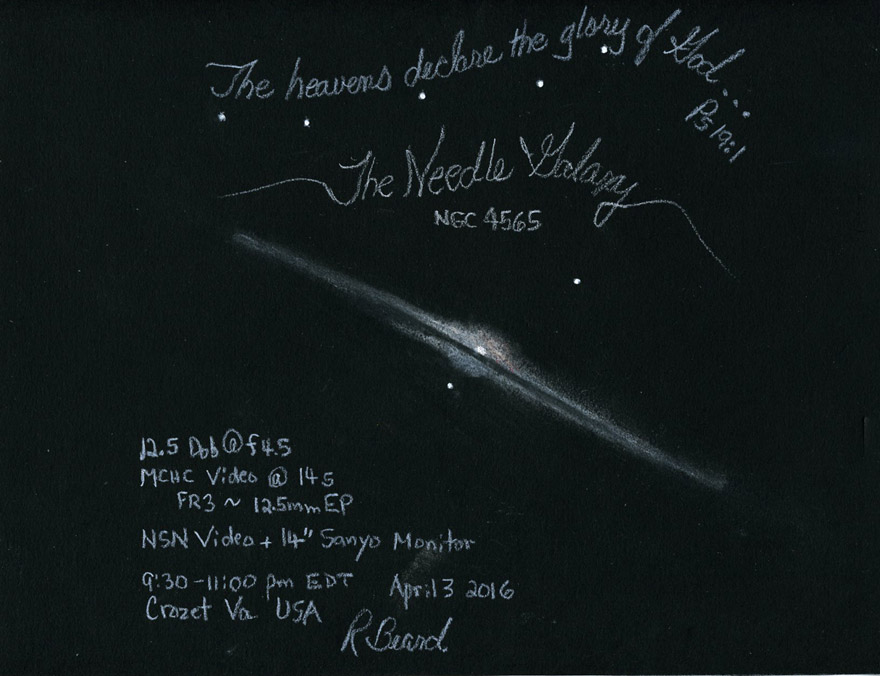 The heavens declare the glory of God...
Ps 19:1
The Needle Galaxy
NGC 4565
12.5 Dob @ f4.5
MCHC Video @ 14s
FR3 ~ 12.5mm EP
NSN Video + 14" Sanyo Monitor
9:30-11:00 pm EDT April 3 2016
Crozet Va USA
R Beard